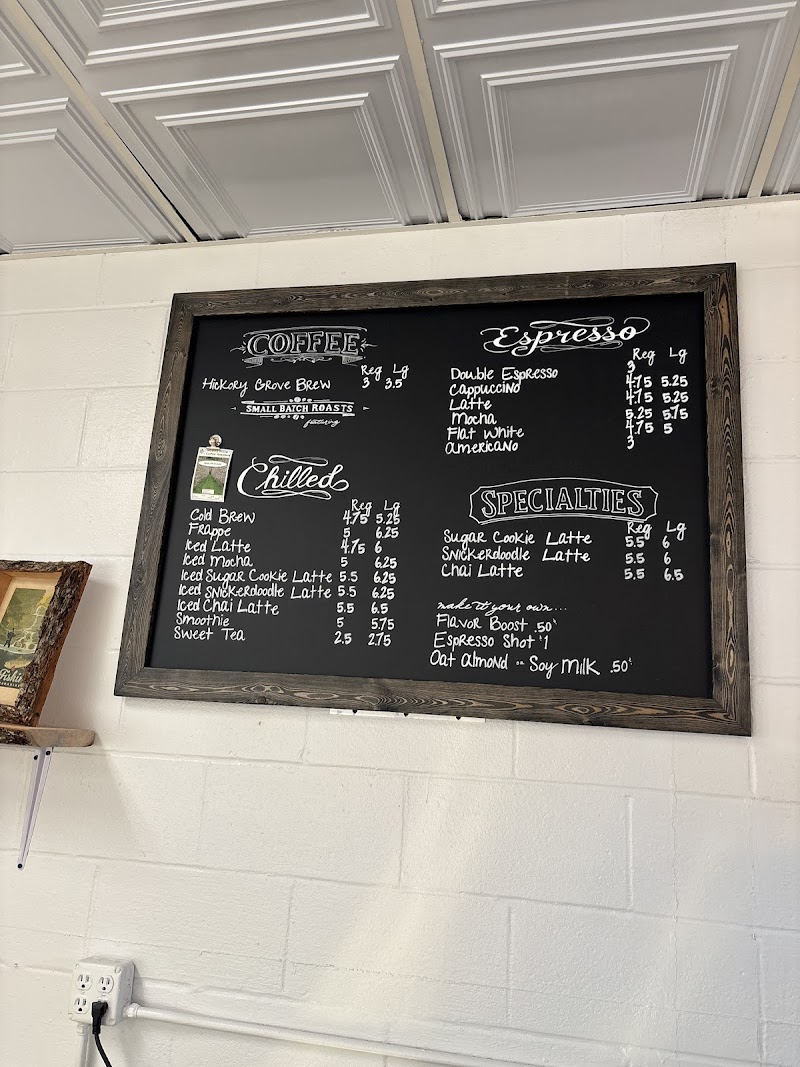 COFFEE
Reg Lg
Hickory Grove Brew 3 3.5
SMALL BATCH ROASTS
featuring
Chilled
Reg Lg
Cold Brew 4.75 5.25
Frappe 5 6.25
Iced Latte 4.75 6
Iced Mocha 5 6.25
Iced Sugar Cookie Latte 5.5 6.25
Iced Snickerdoodle Latte 5.5 6.25
Iced Chai Latte 5.5 6.5
Smoothie 5 5.75
Sweet Tea 2.5 2.75
Espresso
Reg Lg
Double Espresso 3
Cappuccino 4.75 5.25
Latte 4.75 5.25
Mocha 5.25 5.75
Flat White 4.75 5
Americano 3
SPECIALTIES
Reg Lg
Sugar Cookie Latte 5.5 6
Snickerdoodle Latte 5.5 6
Chai Latte 5.5 6.5
make it your own...
Flavor Boost .50
Espresso Shot 1
Oat Almond or Soy Milk .50